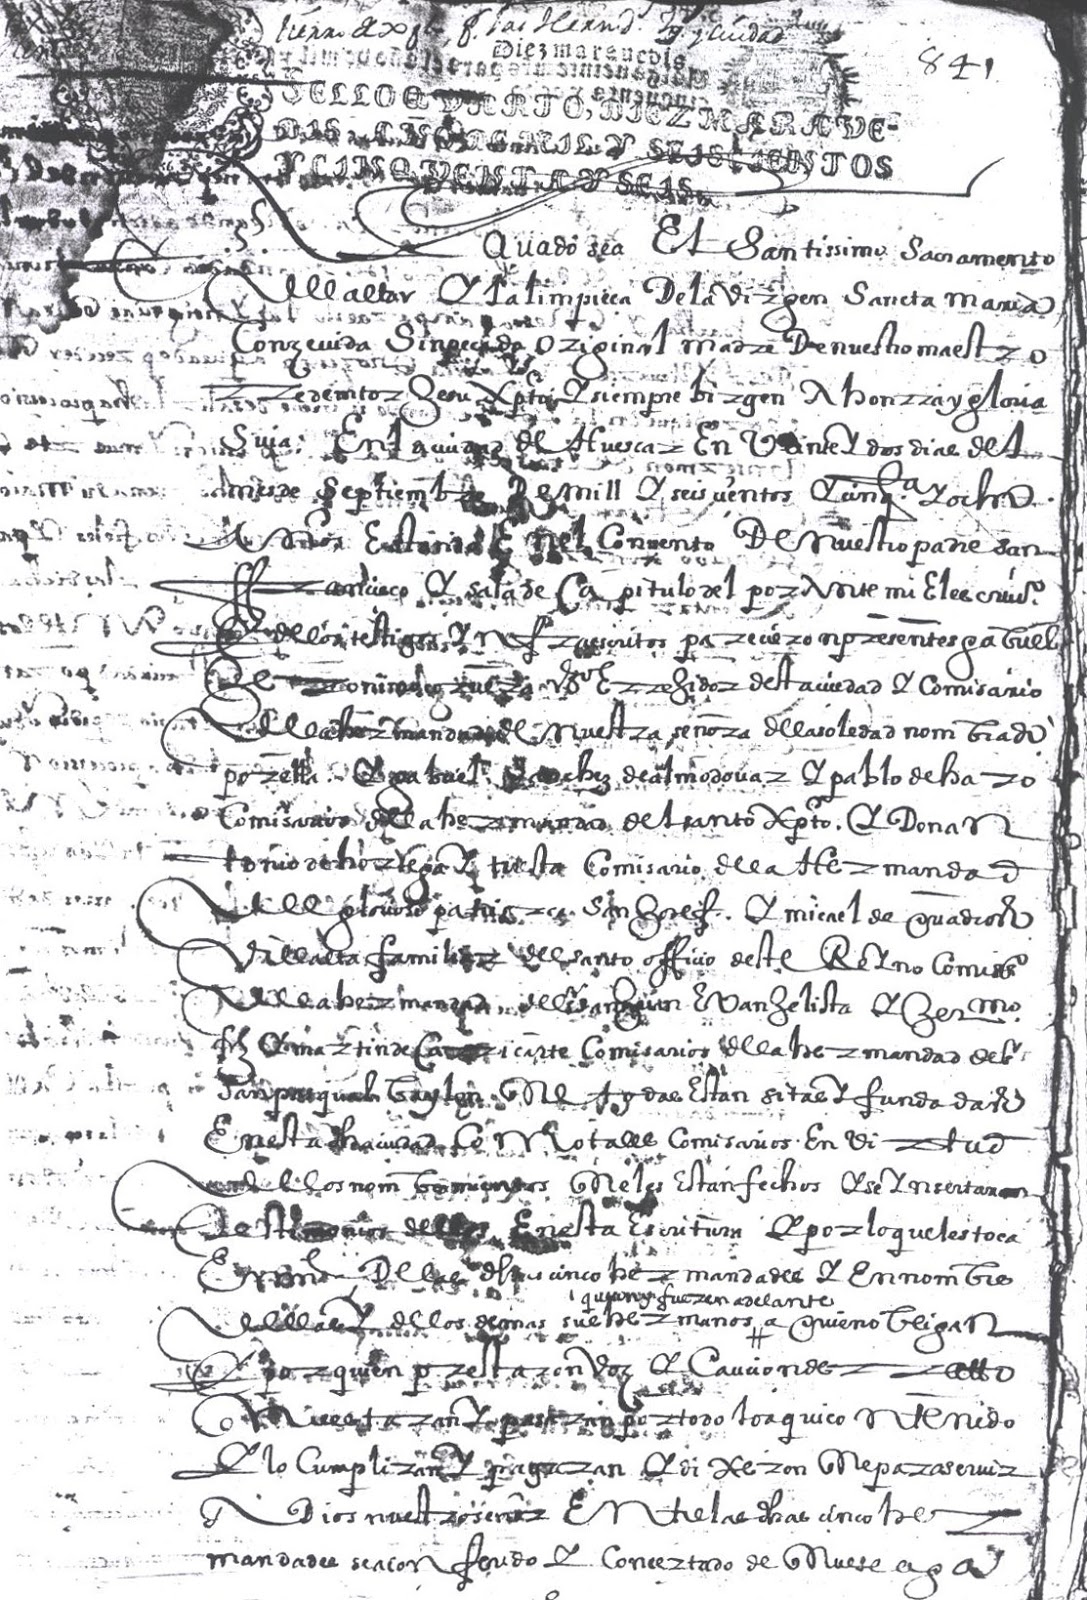 841
Diez maravedis
SELLO QVARTO, DIEZ MARAVE-
DIS, AÑO DE MIL Y SEISCIENTOS
Y CINQVENTA Y SEIS.
Auado sea El Santissimo Sacramento
dell altar Y la limpieça De la Virgen Sancta maria
Conzevida Sin pecado Original madre De nuestro maestro
Y Redemtor Jesu Xpto Y siempre birgen A honrra y gloria
Suia. En la ciudad de Huescar En Veinte Y dos dias del
mes de Septiembre De mill Y seiscientos Y cinqta Y ocho
Años Estando En el Convento De nuestro padre san
Francisco Y sala de Capitulo del por Ante mi El escriuo
Y de los testigos Ynfraescritos parecieron presentes gabriel
Regidor desta ciudad Y Comisario
de la hermandad de Nuestra señora de la soledad nombrado
por ella. Y gabriel Sanchez de almodovar Y pablo de haro
Comisarios de la hermandad del santo Xpto. Y Don An
tonio de hortega Y testa Comisario de la Hermandad
del glorioso patriarca San Josef. Y micael de guadiana
Villalta familiar del santo officio deste Reino Comisso
de la hermandad de San Juan Evanjelista Y Jermo
frz Y martin de Comisarios de la hermandad de
San pasqual baylon que todas Estan sitas Y fundadas
En esta dha ciudad los tales Comisarios En virtud
de los nombramientos que les Estan fechos que se Ynsertaran
testimonios dellos En esta Escritura Y por lo que les toca
En nombre De las dhas cinco hermandades Y En nombre
quienes fueren adelante
de llas Y de los demas sus hermanos a quien obligan
Y por quien prestaron Voz Y Caucion de rrato
que Estaran Y pasaran por todo lo aqui contenido
Y lo Cumpliran Y pagaran Y dixeron que para servir
A Dios nuestro señor Entre las dhas cinco her
mandades se a conferido Y Concertado de que se aga